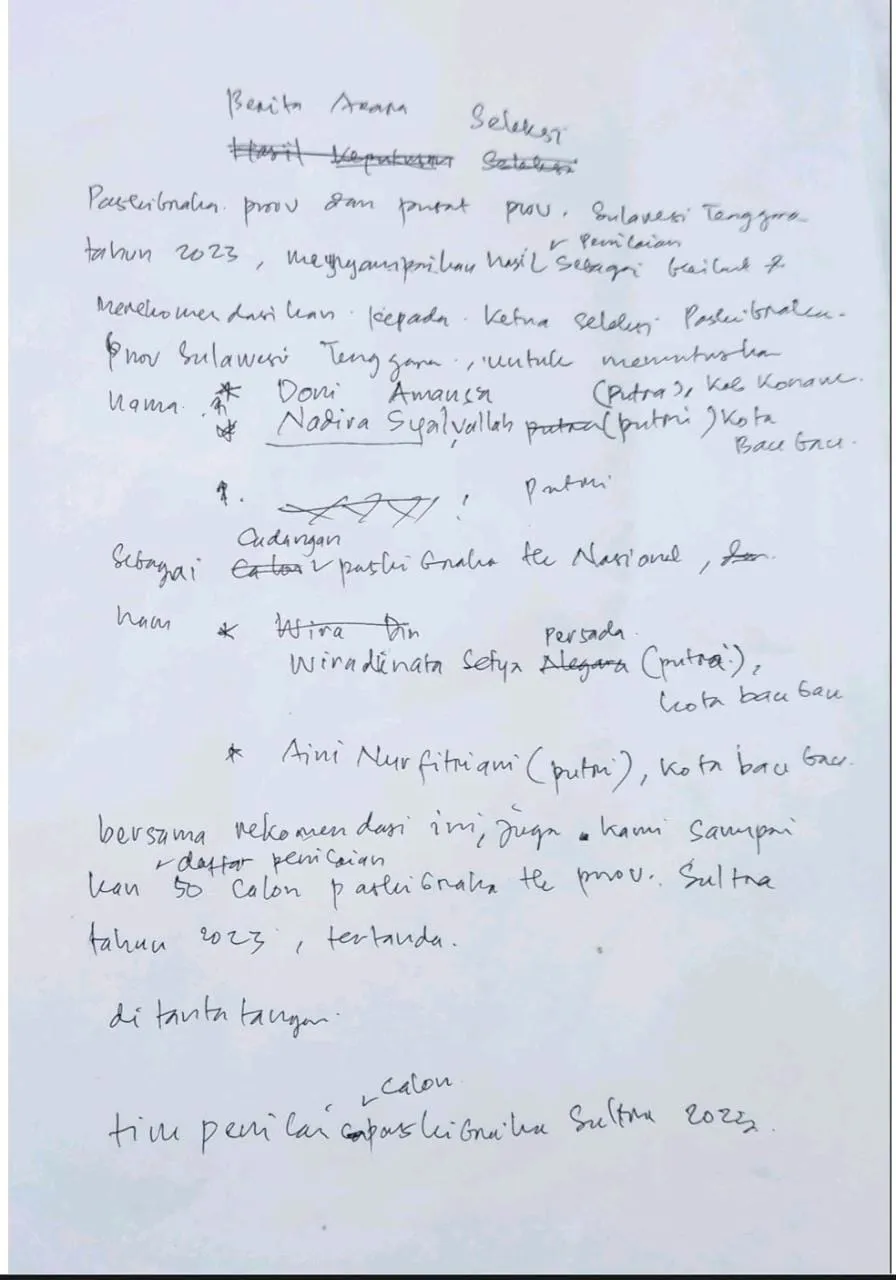 Berita Acara Seleksi
Hasil Keputusan Seleksi
Paskibraka prov dan pusat prov. Sulawesi Tenggara
tahun 2023, menyampaikan hasil penilaian sebagai berikut
Merekomendasikan kepada Ketua seleksi Paskibraka
Prov Sulawesi Tenggara, untuk memutuskan
nama * Doni Amansa (putra), Kab Konawe.
* Nadira Syalvallah putra (putri) Kota
Bau bau.
1. ! Putri
Cadangan
Sebagai Calon paskibraka tk Nasional, dan
nam * Wira Din
Persada
Wiradinata Setya Negara (putra),
kota bau bau
* Aini Nur fitriani (putri), Kota bau bau.
bersama rekomendasi ini, juga kami sampai
daftar penilaian
kan 50 Calon paskibraka tk prov. Sultra
tahun 2023, tertanda.
di tanta tangan.
calon
tim penilai paskibraka Sultra 2023.